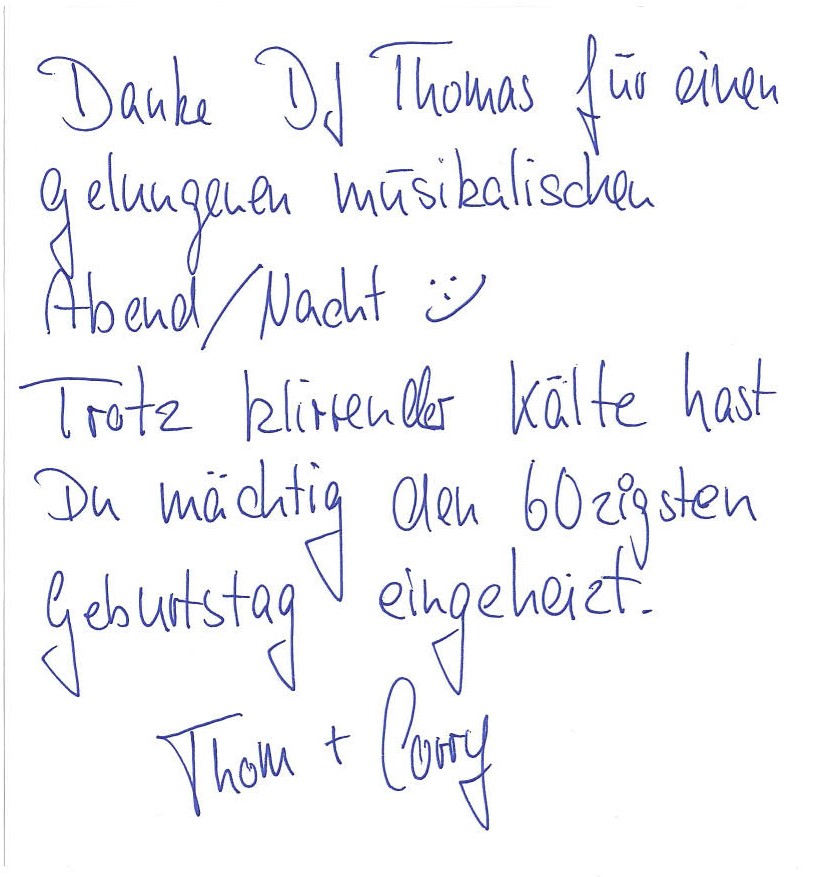 Danke DJ Thomas für einen
gelungenen musikalischen
Abend/Nacht :)
Trotz klirrender Kälte hast
Du mächtig den 60zigsten
Geburtstag eingeheizt.
Thom + Corry